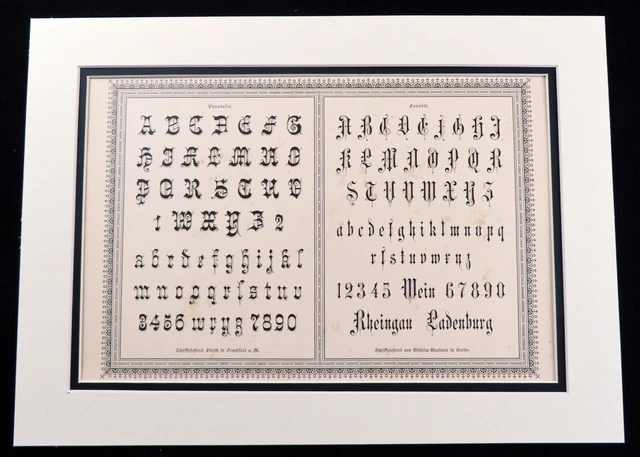 Fantasie.
A B C D E F G
H I K L M N O
P Q R S T U V
1 W X Y Z 2
a b c d e f g h i j k l
m n o p q r ſ s t u v
3456 w x y z 7890
Schriftgießerei Flinsch in Frankfurt a. M.
Favorit.
A B C D E F G H I
K L M N O P Q R
S T U V W X Y Z
a b c d e f g h i k l m n o p q
r ſ s t u v w x y z
12345 Wein 67890
Rheingau Ladenburg
Schriftgießerei von Wilhelm Woellmer in Berlin.